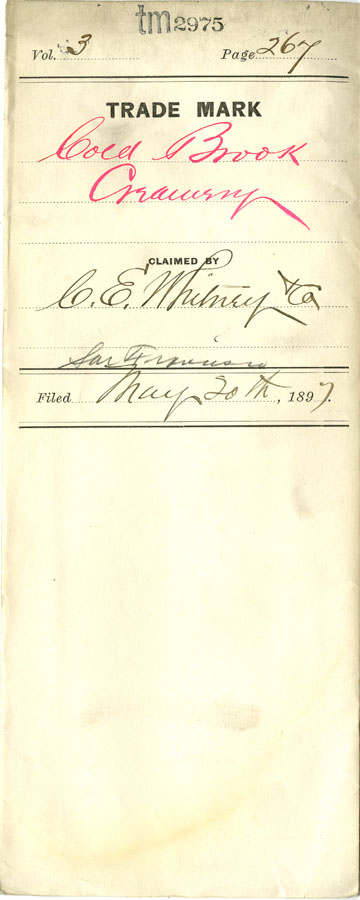 tm2975
Vol. 3 Page 267
TRADE MARK
Cold Brook
Creamery
CLAIMED BY
C. E. Whitney & Co
San Francisco
Filed May 20th, 1897.